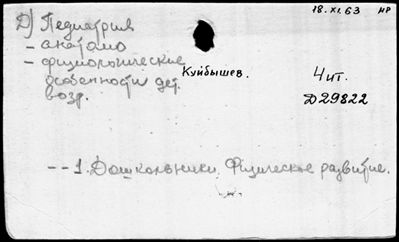 18.XI.63 НР
Д) Педиатрия
- анатомо
- физиологические
Куйбышев.
особенности дет.
возр.
Чит.
Д29822
-- 1. Дошкольники. Физическое развитие.